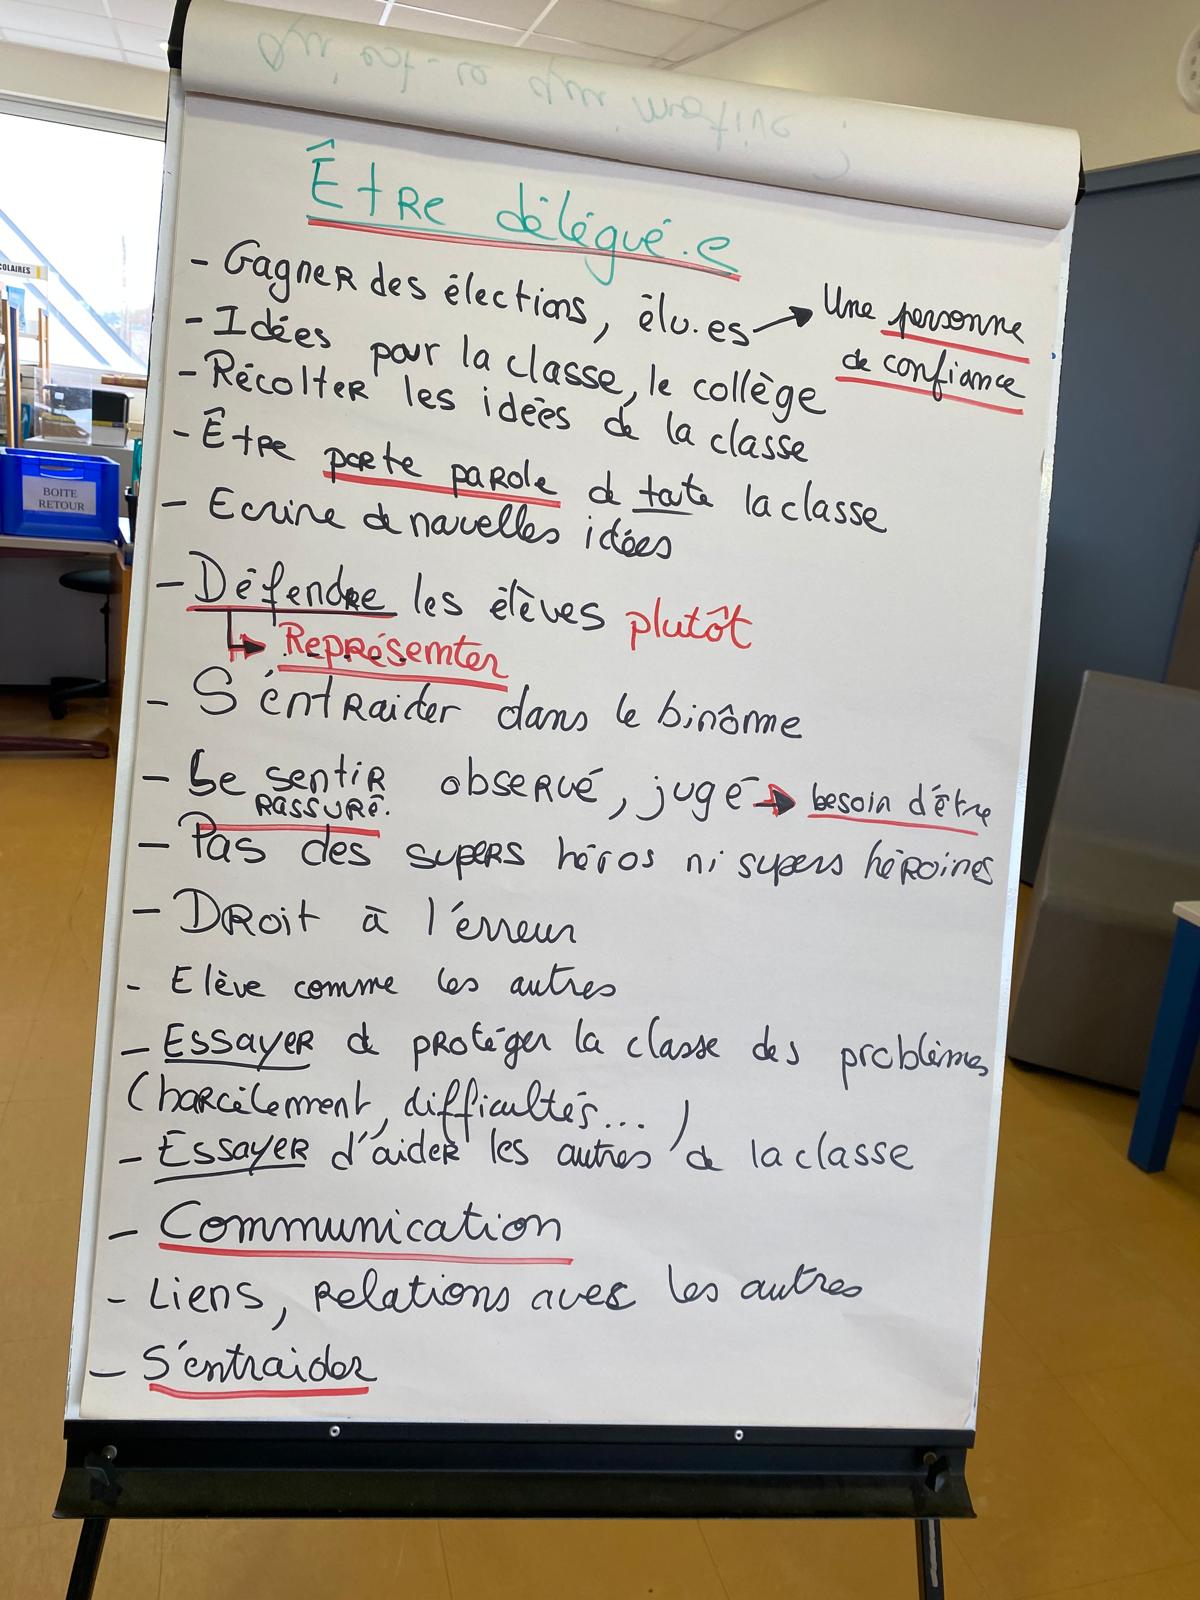 Être délégué.e
- Gagner des élections, élu.es → Une personne
de confiance
- Idées pour la classe, le collège
- Récolter les idées de la classe
- Être porte parole de toute la classe
- Ecrire de nouvelles idées
- Défendre les élèves plutôt
→ Représenter
- S'entraider dans le binôme
- Se sentir observé, jugé → besoin d'être
rassuré.
- Pas des supers héros ni supers héroines
- Droit à l'érreur
- Elève comme les autres
- Essayer de protéger la classe des problèmes
(harcèlement, difficultés...)
- Essayer d'aider les autres de la classe
- Communication
- Liens, relations avec les autres
- S'entraider
COLAIRES
BOITE
RETOUR